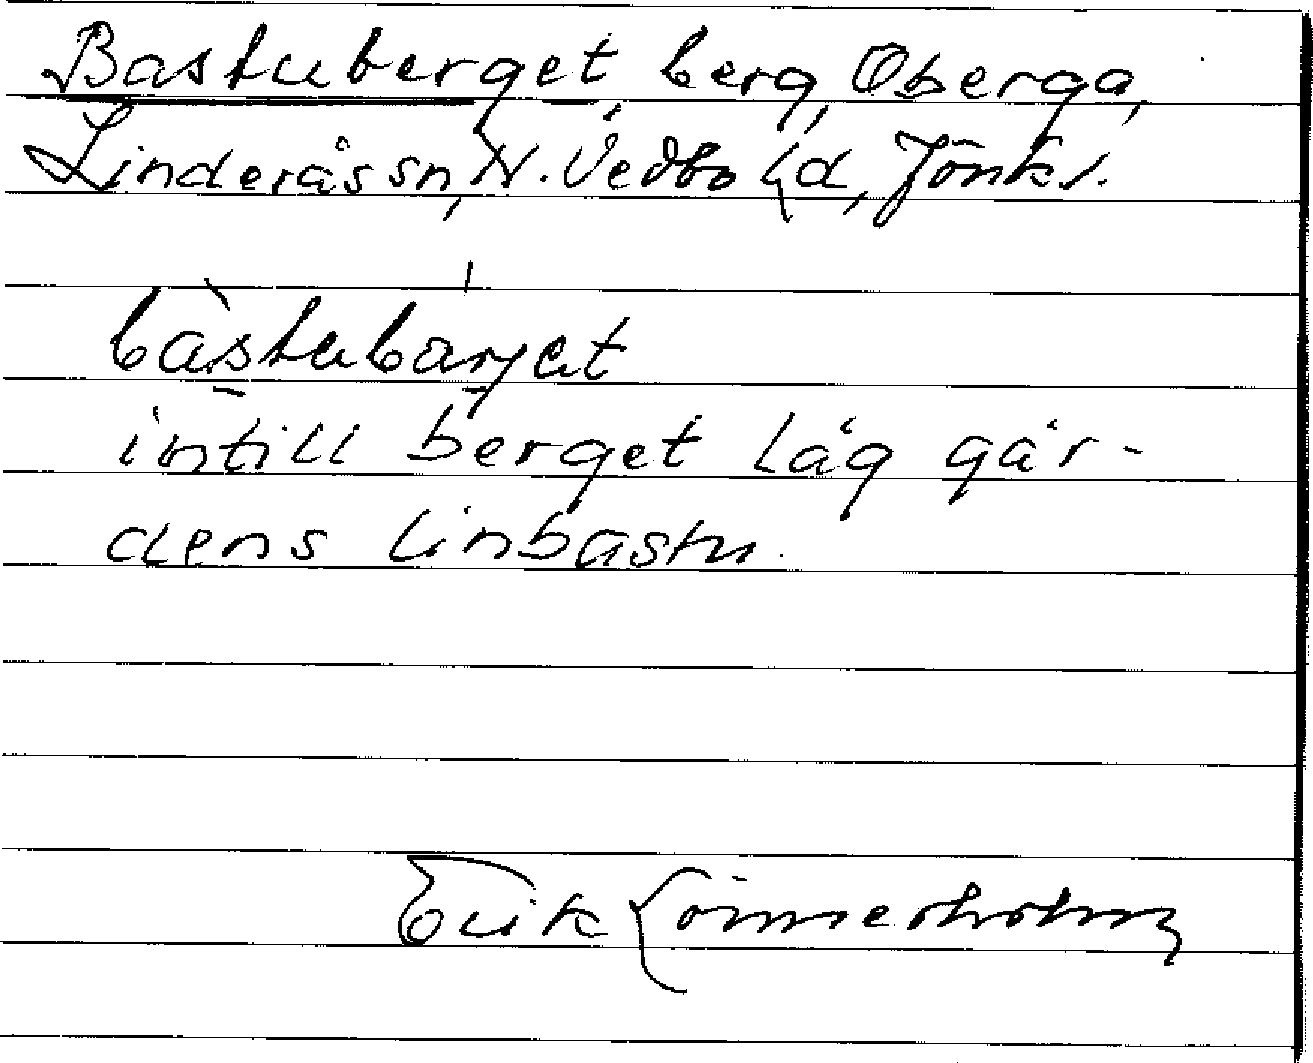 Bastuberget berg, Oberga,
Linderås sn, N. Vedbo hd, Jönk l.
bàstubárjet
intill berget låg går-
dens linbastu.
Erik Lönnerholm